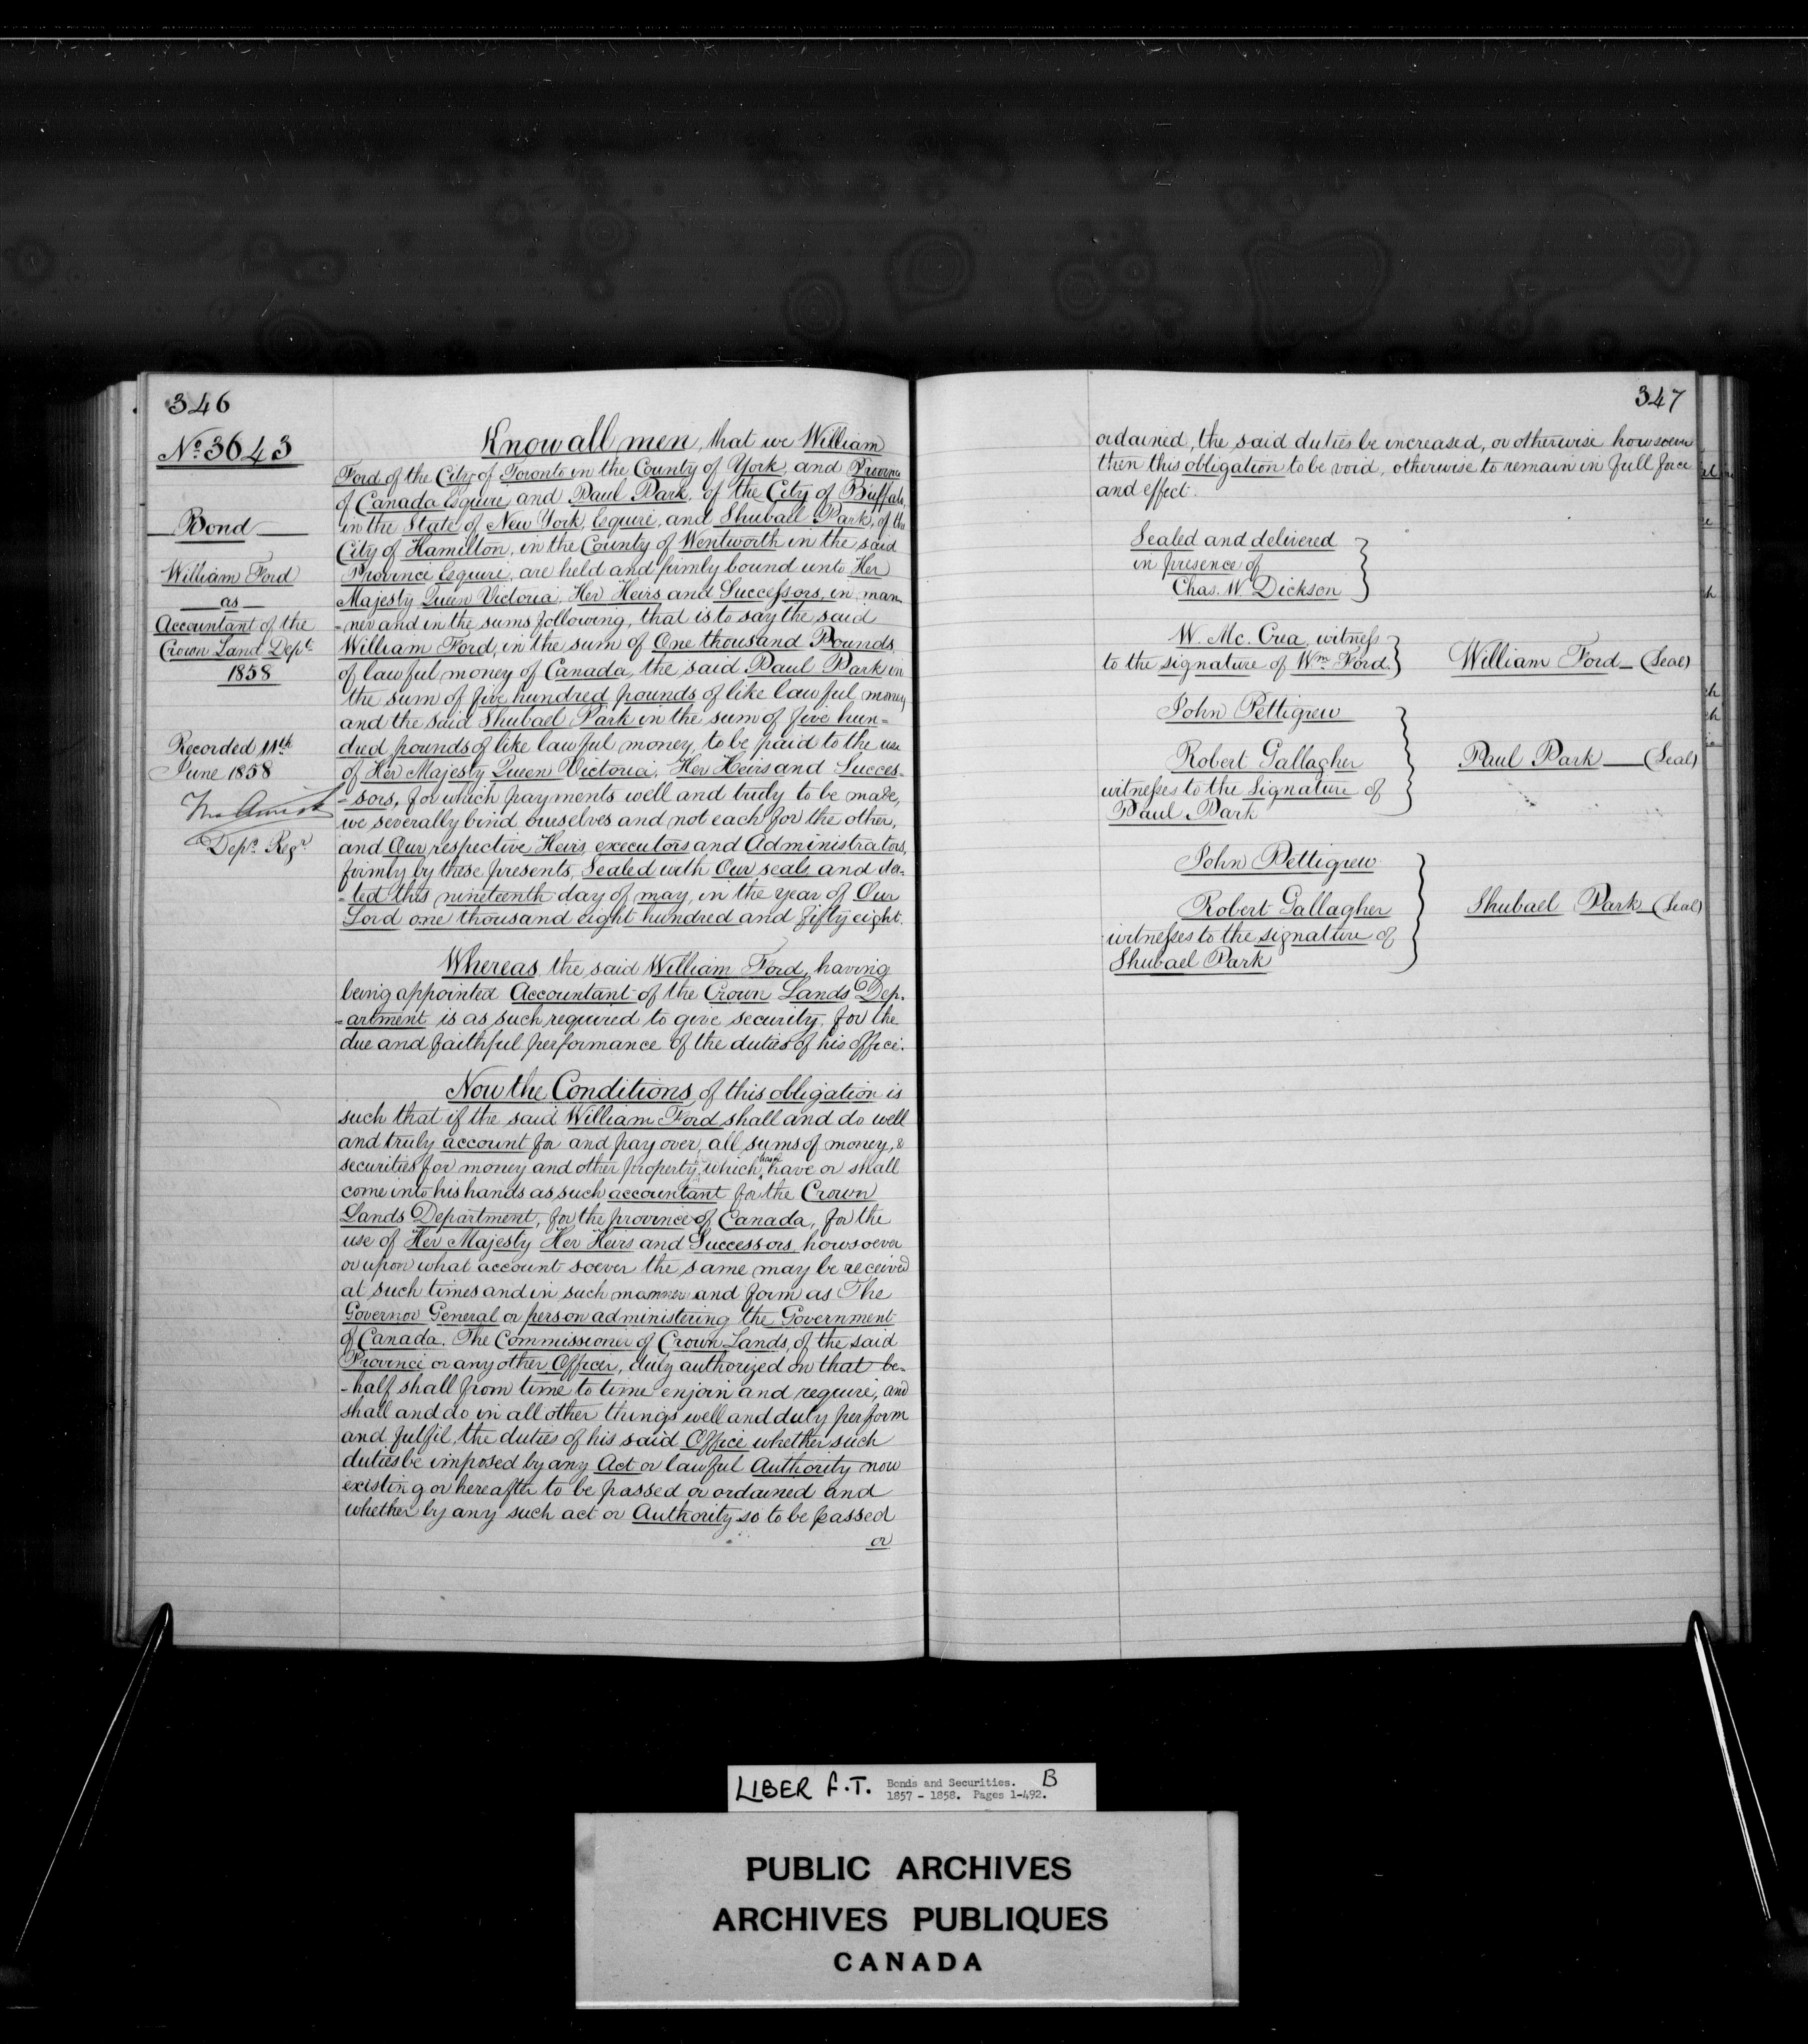 346
No. 3643
Bond
William Ford
as
Accountant of the
Crown Land Dept.
1858
Recorded 11th
June 1858
Depy. Regr.
Know all men, that we William
Ford of the City of Toronto in the County of York, and Province
of Canada Esquire and Paul Park, of the City of Buffalo,
in the State of New York, Esquire, and Shubael Park, of the
City of Hamilton, in the County of Wentworth in the said
Province Esquire, are held and firmly bound unto Her
Majesty Queen Victoria, Her Heirs and Successors, in man-
-ner and in the sums following, that is to say the said
William Ford, in the sum of One thousand Pounds,
of lawful money of Canada, the said Paul Park in
the sum of five hundred pounds of like lawful money
and the said Shubael Park in the sum of five hun-
dred pounds of like lawful money, to be paid to the use
of Her Majesty Queen Victoria, Her Heirs and Succes-
-sors, for which payments well and truly to be made,
we severally bind ourselves and not each for the other,
and Our respective Heirs, executors and Administrators,
firmly by these presents, Sealed with Our seals and da-
-ted this nineteenth day of may, in the year of Our
Lord one thousand eight hundred and fifty eight.
Whereas the said William Ford, having
being appointed Accountant of the Crown Lands Dep-
-artment is as such required to give security, for the
due and faithful performance of the duties of his office.
Now the Conditions of this obligation is
such that if the said William Ford shall and do well
and truly account for and pay over, all sums of money, &
securities for money and other property, which have or shall
come into his hands as such accountant for the Crown
Lands Department, for the province of Canada, for the
use of Her Majesty Her Heirs and Successors, howsoever
or upon what account soever the same may be received
at such times and in such manner and form as The
Governor General or person administering the Government
of Canada. The Commissioner of Crown Lands, of the said
Province or any other Officer, duly authorized on that be-
-half shall from time to time enjoin and require, and
shall and do in all other things well and duly perform
and fulfil, the duties of his said Office whether such
duties be imposed by any Act or lawful Authority now
existing or hereafter to be passed or ordained and
whether by any such act or Authority so to be passed
or
347
ordained, the said duties be increased, or otherwise howsoever
then this obligation to be void, otherwise to remain in full force
and effect.
Sealed and delivered
in presence of
Chas. W. Dickson
W. Mc. Crea, witness
to the signature of Wm. Ford. William Ford (Seal)
John Pettigrew
Robert Gallagher Paul Park (Seal)
witnesses to the Signature of
Paul Park
John Pettigrew
Robert Gallagher Shubael Park (Seal)
witnesses to the signature of
Shubael Park
LIBER F.T. Bonds and Securities. B
1857 - 1858. Pages 1-492.
PUBLIC ARCHIVES
ARCHIVES PUBLIQUES
CANADA